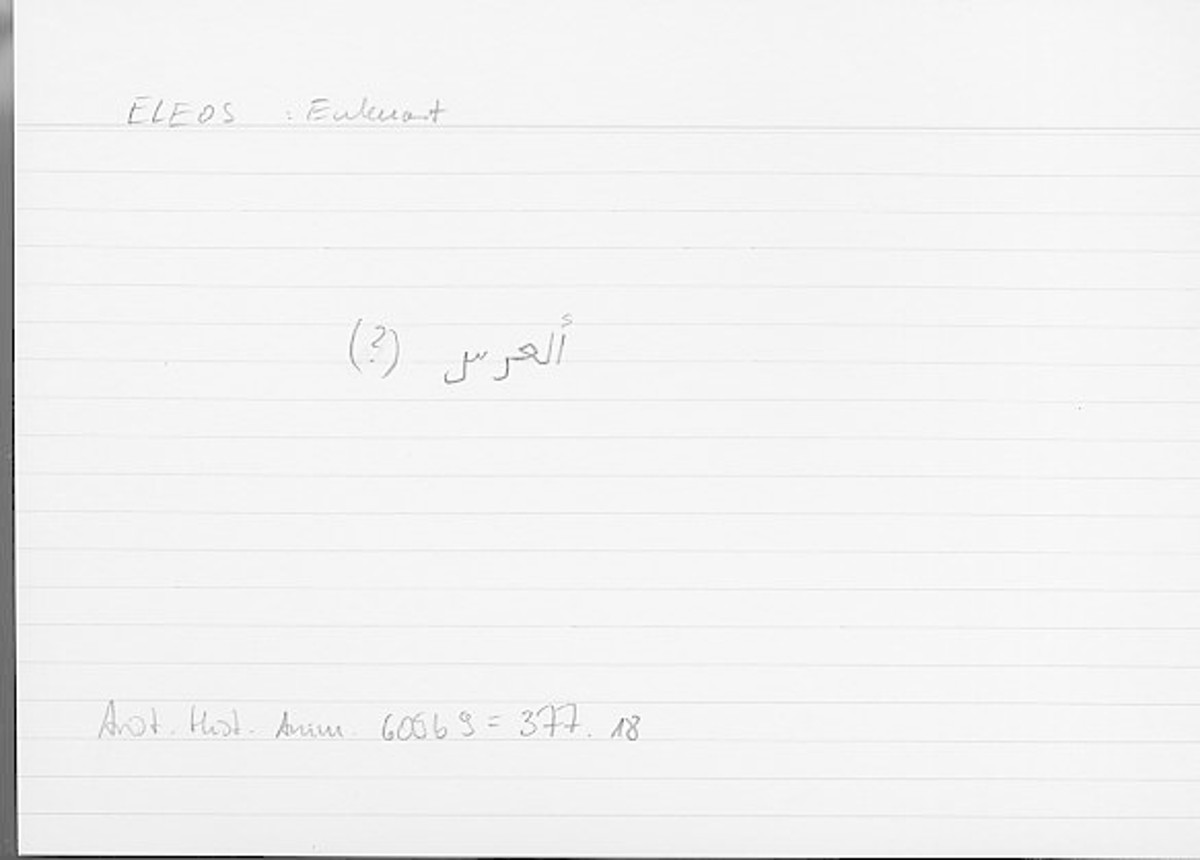 ELEOS : Eulenart
ألعرس (?)
Arist. Hist. Anim. 609b9 = 377. 18